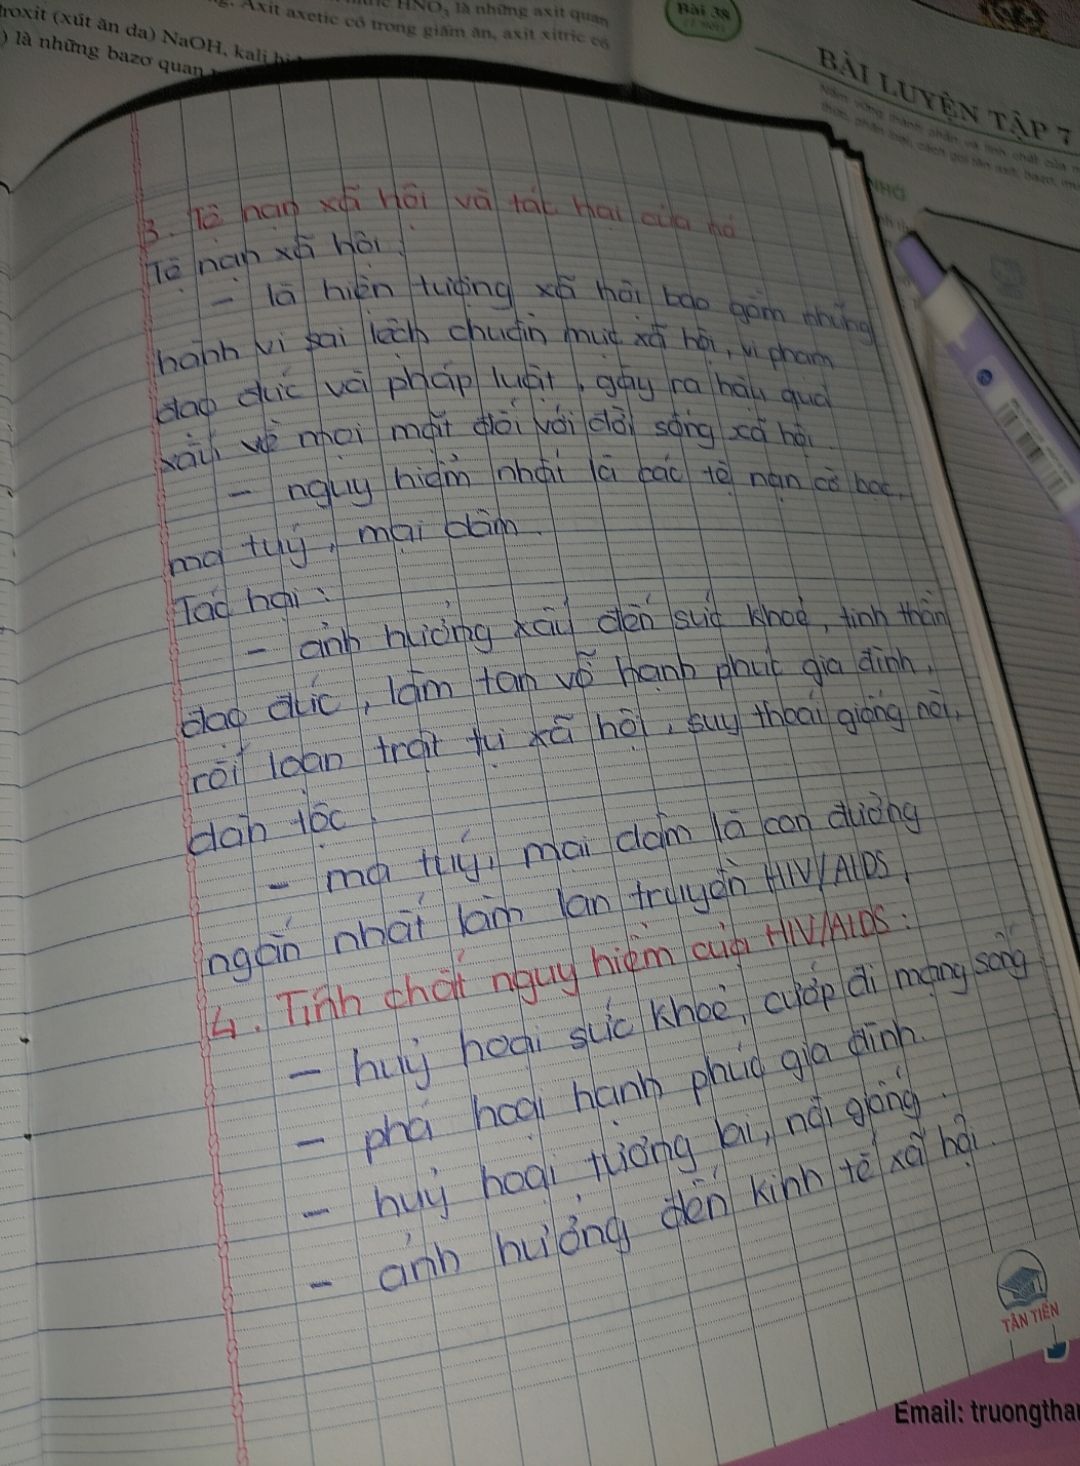 troxit (xút ăn da) NaOH, kali
) là những bazơ quan
HNO₃ là những axit quan
Axit axetic có trong giấm ăn, axit xitric có
Bài 38
BÀI LUYỆN TẬP 7
3. Tệ nạn xã hội và tác hại của nó
Tệ nạn xã hội:
- là hiện tượng xã hội bao gồm những
hành vi sai lệch chuẩn mực xã hội, vi phạm
đạo đức và pháp luật, gây ra hậu quả
xấu về mọi mặt đối với đời sống xã hội.
- nguy hiểm nhất là các tệ nạn cờ bạc,
ma tuý, mại dâm.
Tác hại:
- ảnh hưởng xấu đến sức khoẻ, tinh thần
đạo đức, làm tan vỡ hạnh phúc gia đình,
rối loạn trật tự xã hội, suy thoái giống nòi,
dân tộc.
- ma tuý, mại dâm là con đường
ngắn nhất làm lan truyền HIV/AIDS.
4. Tính chất nguy hiểm của HIV/AIDS:
- huỷ hoại sức khoẻ, cướp đi mạng sống
- phá hoại hạnh phúc gia đình.
- huỷ hoại tương lai, nòi giống.
- ảnh hưởng đến kinh tế xã hội.
TÂN TIẾN
Email: truongtha